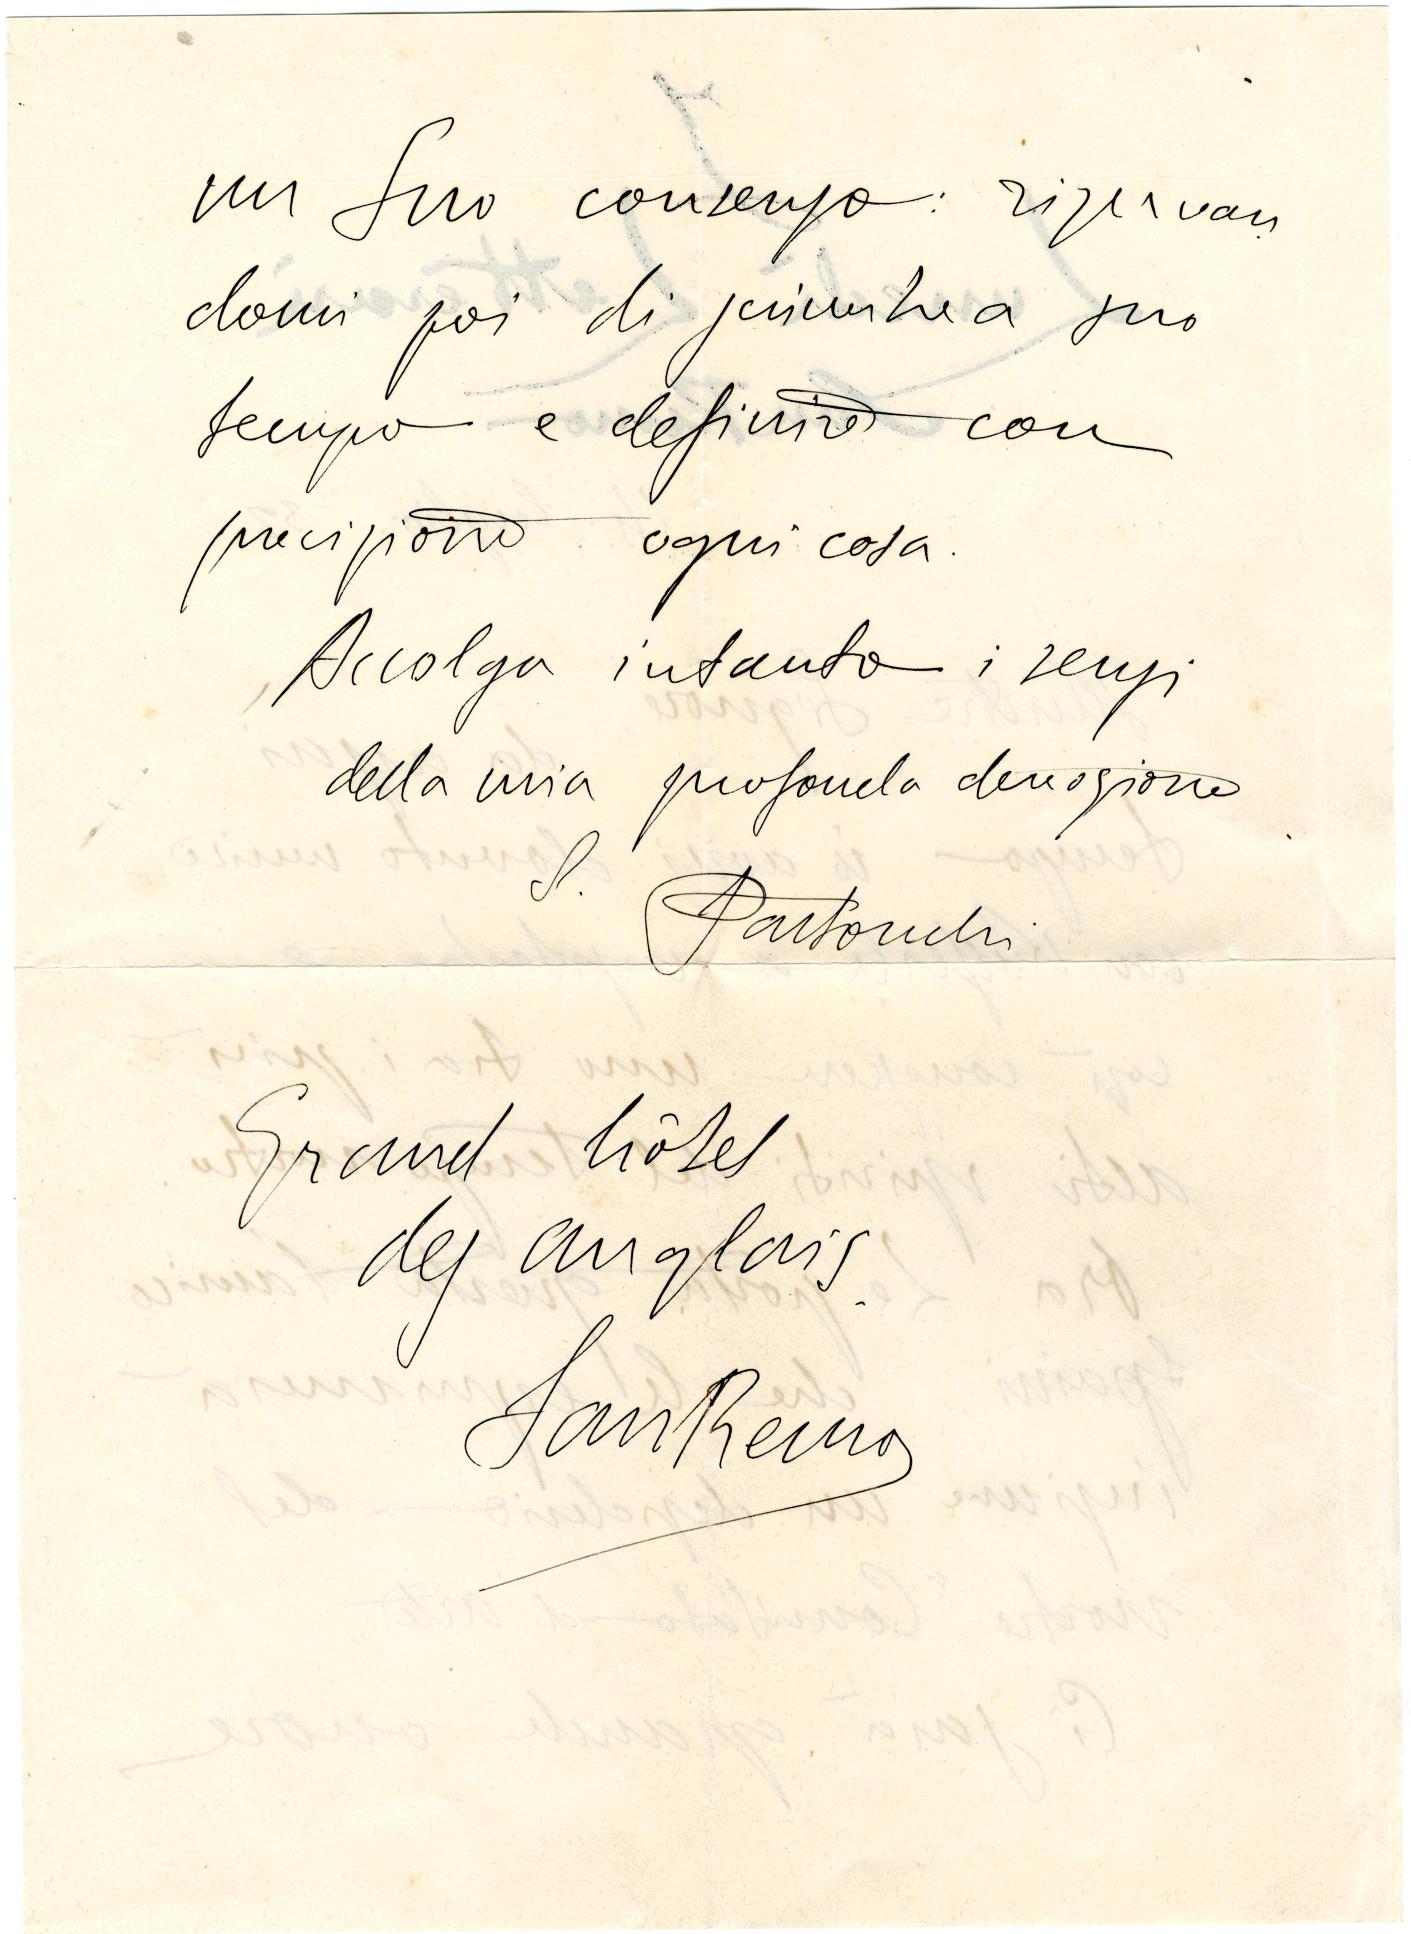 un Suo consenso: riservan
domi poi di scriverLe a suo
tempo e definire con
precisione ogni cosa.
Accolga intanto i sensi
della mia profonda devozione
S. Pastonchi
Grand hôtel
des anglais.
San Remo